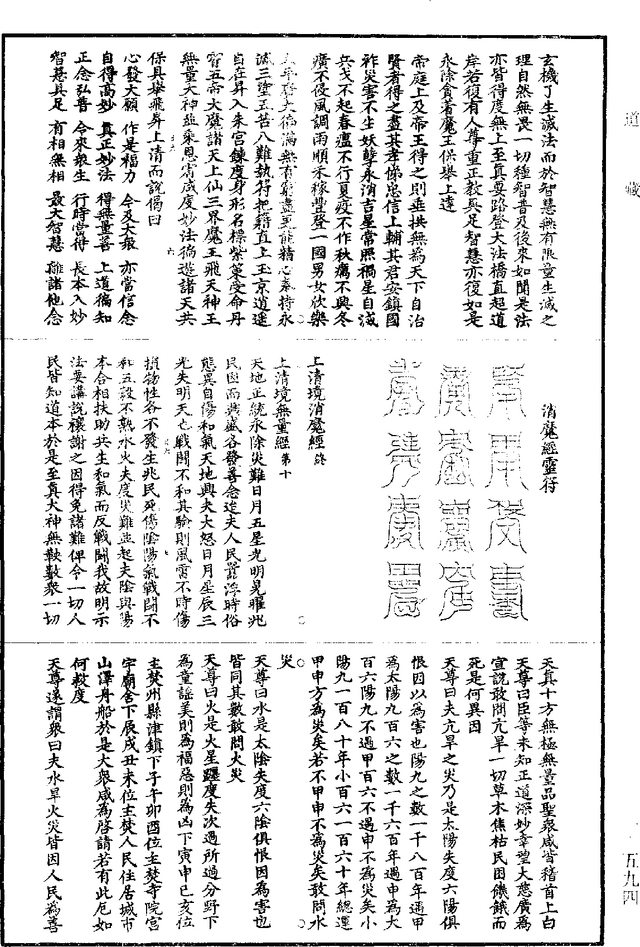 道藏
玄機了生滅法而於智慧無有限量生滅之
理自然無畏一切種智普及後來如聞是法
亦皆得度無上至真要路登大法橋直超道
岸若復有人尊重正教具足智慧亦復如是
永除貪著魔王保舉上達
帝庭上及帝王得之則垂拱無為天下自治
賢者得之盡其孝悌忠信上輔其君安鎮國
祚災害不生妖孽永消吉星常照禍星自滅
兵戈不起春瘟不行夏疫不作秋瘧不興冬
癘不侵風調雨順禾稼豐登一國男女欣樂
太平啓大德滿無有窮盡更能精心奉持永
滅三塗五苦八難執符把籍直上玉京逍遥
自在昇入朱宮鍊度身形名標紫筆度命丹
霄五帝大魔諸天上仙三界魔王飛天神王
無量大神並乘恩宥咸度妙法徜遊諸天共
保具舉飛昇上清而說偈曰
心發大願　作是福力　今及大衆　亦當信念
自得高妙　真正妙法　得無量善　上道循知
正念弘普　今來衆生　行時當得　長本入妙
智慧具足　有相無相　最大智慧　離諸他念
消魔經靈符
上清境消魔經終
上清境無量經第十
天地正統永除災難日月五星光明晃曜兆
民因而興盛各發善念迨夫人民囂浮時俗
態異自傷和氣天地興夫大怒日月星辰三
光失明天亡戰鬭不和其驗則風雷不時傷
損物性各不發生兆民死傷陰陽氣戰鬭不
和五穀不熟水火失度災難並起夫陰與陽
本合相扶助共生和氣而反戰鬭我故明示
法要講說禳謝之因得免諸難俾令一切人
民皆知道本於是至真大神無鞅數衆一切
天真十方無極無量品聖衆咸皆稽首上白
天尊曰臣等未知正道深妙幸望大慈廣為
宣說敢問亢旱一切草木焦枯民困饑餓而
死是何異因
天尊曰夫亢旱之災乃是太陽失度六陽俱
恨因以為害也陽九之數一千八百年遇甲
為太陽九百六之數一千六百年遇申為大
百六陽九不遇甲百六不遇申不為災矣小
陽九一百八十年小百六一百六十年總運
甲申方為災矣若不甲申不為災矣敢問水
災
天尊曰水是太陰失度六陰俱恨因為害也
皆同其數敢問火災
天尊曰火是火星躔度失次過所過分野下
為童謡美則為福惡則為凶下寅申巳亥位
主焚州縣津鎮下子午卯酉位主焚寺院宮
宇廟舍下辰戌丑未位主焚人民住居城市
山澤舟船於是大衆咸為啓請若有此厄如
何救度
天尊遂謂衆曰夫水旱火災皆因人民為善
五九四